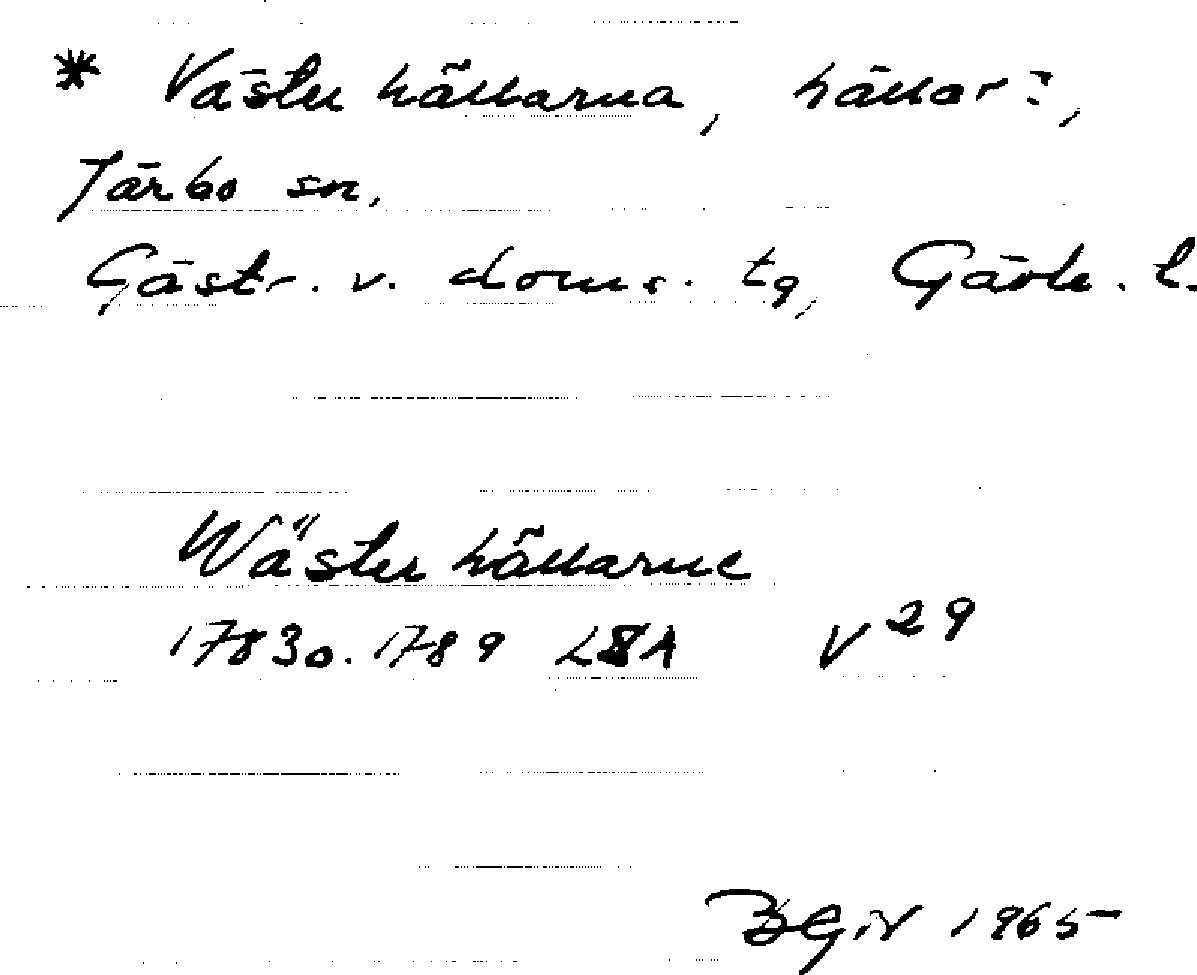 * Väster hällarna, hällar?,
Järbo sn.
Gästr. v. doms. tg, Gävle. l.
Wäster hällarne
1783o. 1789 LSA V29
BGiN 1965